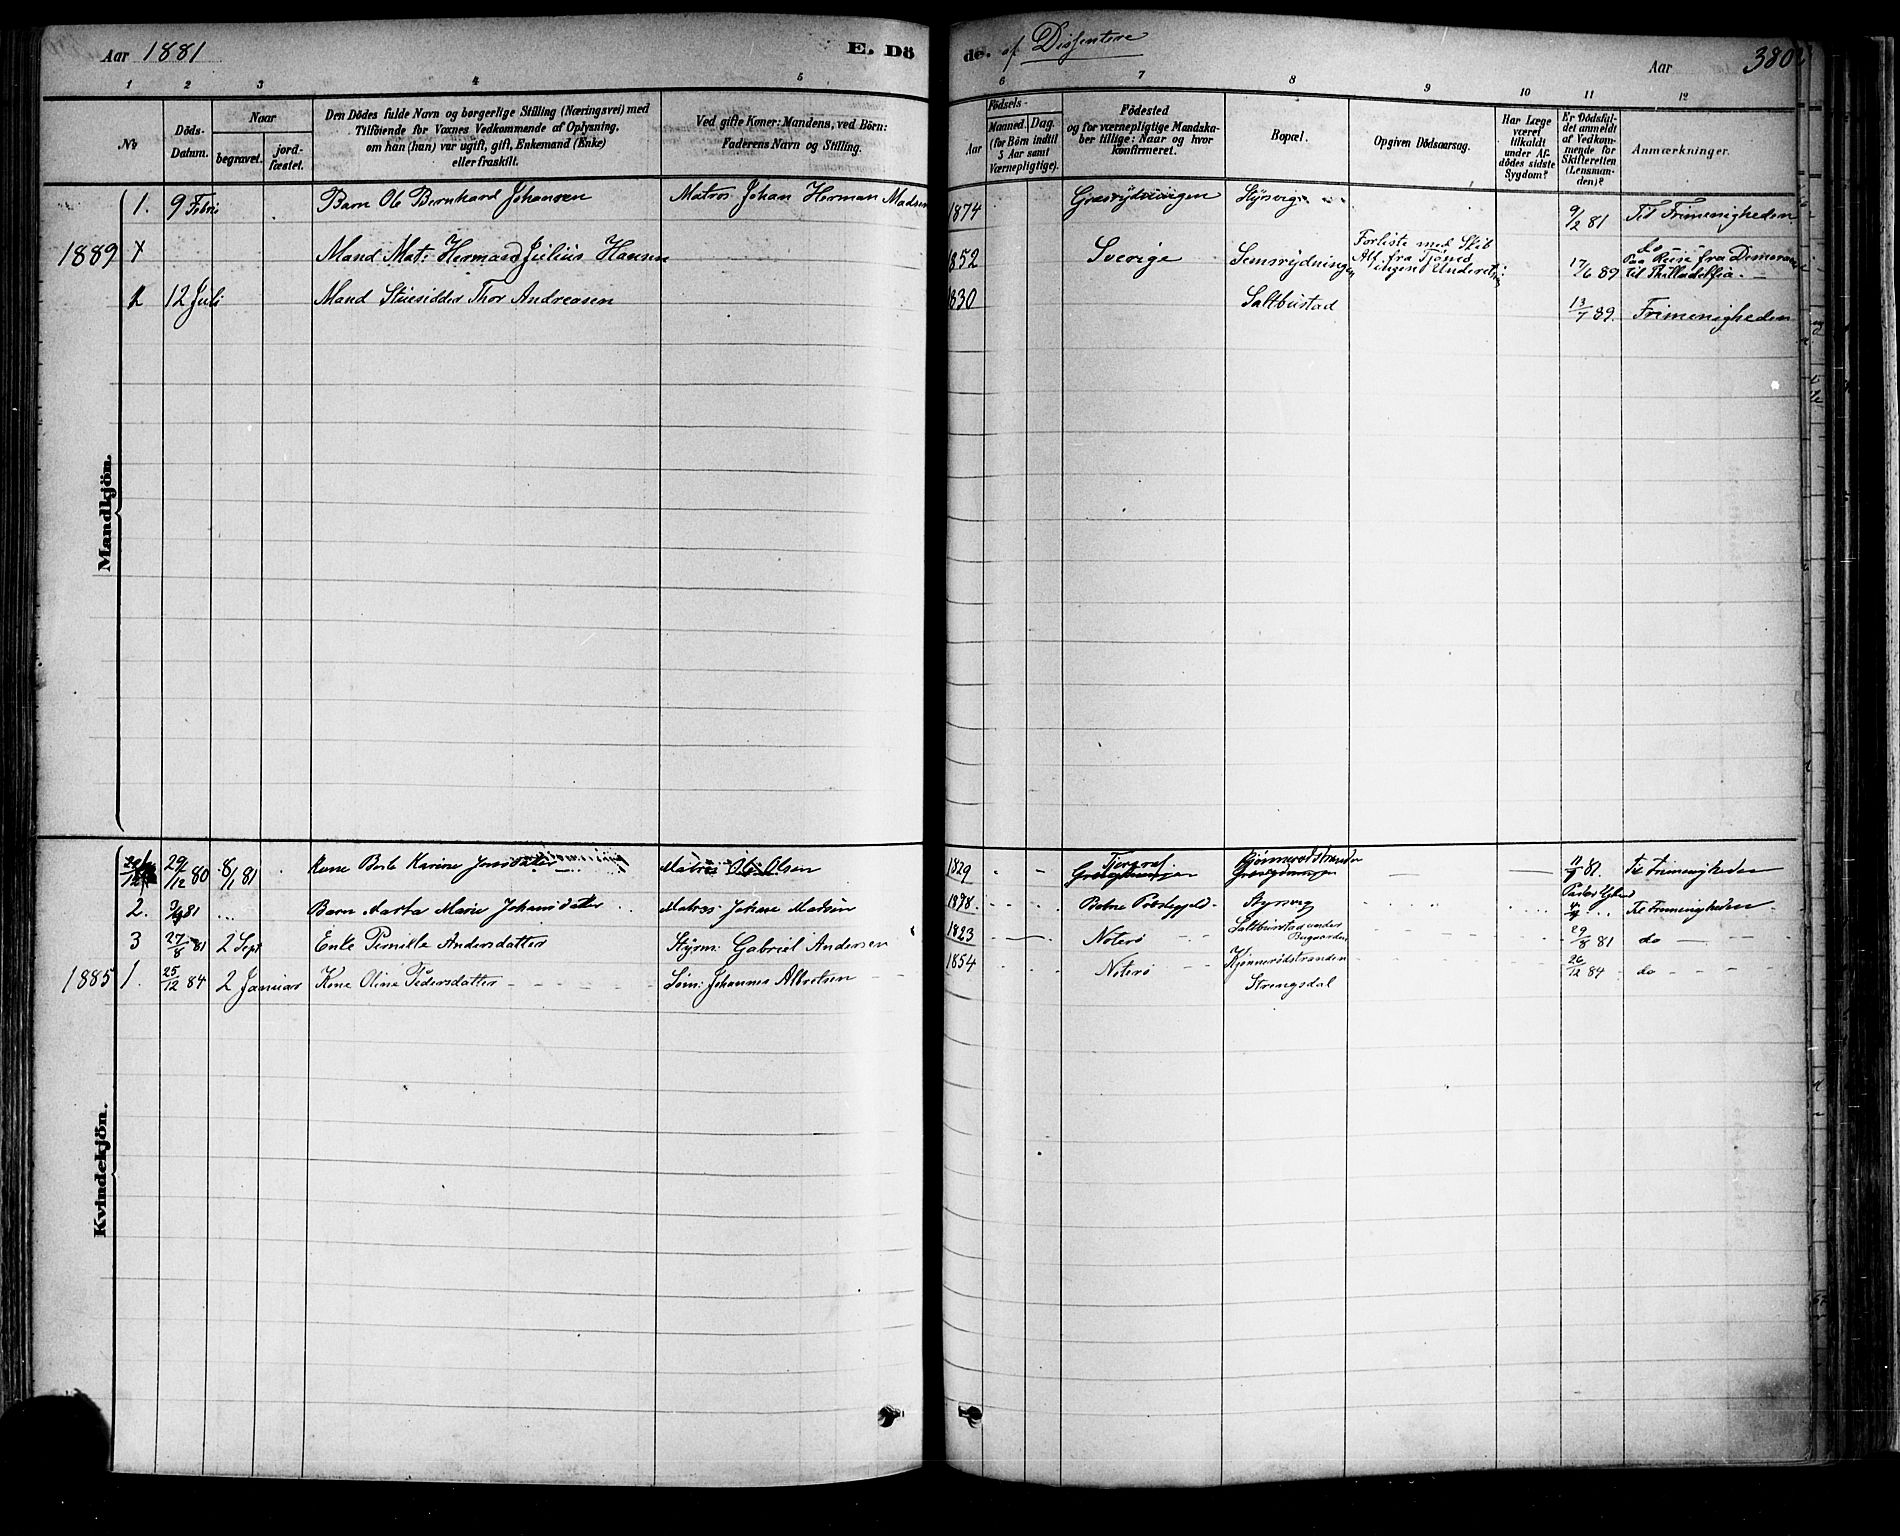 Aar 1881 E. Dö de. af Dissentere Aar 380
1 2 3 4 5 6 7 8 9 10 11 12
No
Döds-Datum.
Naar
begravet.
jord-fæstet.
Den Dödes fulde Navn og borgerlige Stilling (Næringsvei) med
Tilföiende for Voxnes Vedkommende af Oplysning,
om han (hun) var ugift, gift, Enkemand (Enke)
eller fraskilt.
Ved gifte Koner: Mandens, ved Börn:
Faderens Navn og Stilling.
Födsels-
Aar
Maaned. Dag.
(for Börn indtil
5 Aar samt
Værnepligtige).
Födested
og for værnepligtige Mandska-
ber tillige: Naar og hvor
konfirmeret.
Bopæl.
Opgiven Dödsaarsag.
Har Læge
været
tilkaldt
under Af-
dödes sidste
Sygdom?
Er Dödsfal-
det anmeldt
af Vedkom-
mende for
Skifteretten
(Lensman-
den)?
Anmærkninger.
Mandkjön.
1. 9 Febr Barn Ole Bernhard Johansen Matros Johan Herman Madsen 1874 Græsrydningen Styrsvig 9/2 81 Til Frimenigheden
1889 X Mand Mat: Herman Julius Hansen 1852 Sverige Semsrydningen Forliste med Skib Alf fra Tjømø ingen Underetn: 17/6 89 do Paa Reise fra Demerara til Philladelfia.
2 12 Juli Mand Stuesidder Thor Andreasen 1830 Saltbustad 13/7 89. Frimenigheden
Kvindekjön.
29/12 80 8/1 81 Kone Berte Karine Jensdatter Matros Ole Olsen 1829 Kjønnerødstranden 81. Til Frimenigheden
2. 81 Barn Marta Marie Johansdatter Matros Johan Madsen 1878 Styrsvig Til Frimenigheden
3 27/8 81 2 Sept Enke Pernille Andersdatter Styrm: Gabriel Andersen 1823 Noterø Saltbustad under Bugaarden 29/8 81 do
1885 1. 25/12 84 2 Januar Kone Oline Pedersdatter Søm: Johannes Albretsen 1854 Noterø Kjønnerødstranden Strengsdal 26/12 84 do